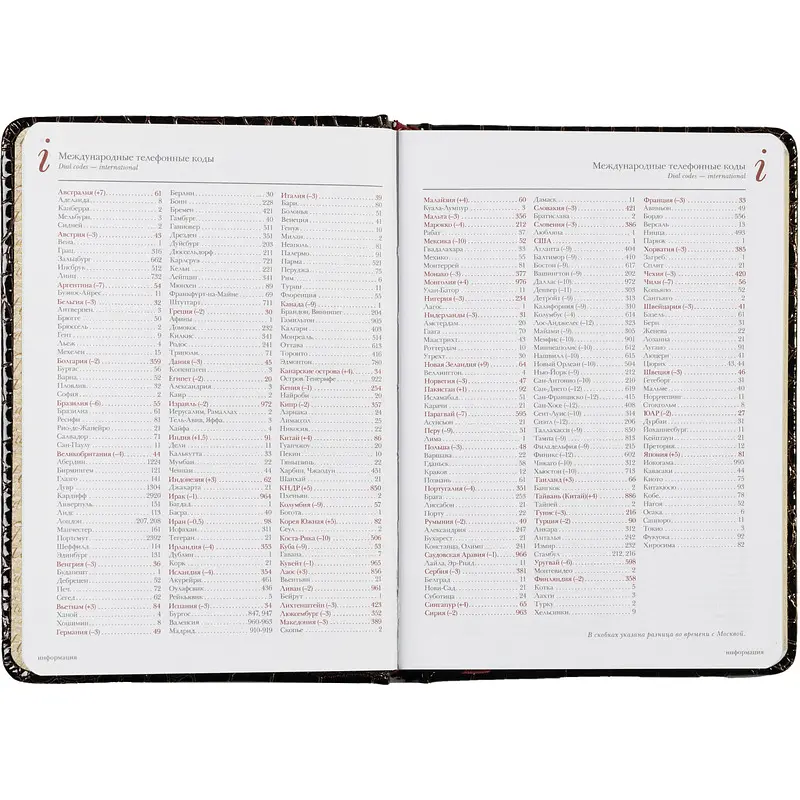 i
Международные телефонные коды
Dial codes — international
Австралия (+7) 61
Аделаида 8
Канберра 2
Мельбурн 3
Сидней 2
Австрия (–3) 43
Вена 1
Грац 316
Зальцбург 662
Инсбрук 512
Линц 732
Аргентина (–7) 54
Буэнос-Айрес 11
Бельгия (–3) 32
Антверпен 3
Брюгге 50
Брюссель 2
Гент 9
Льеж 4
Мехелен 15
Болгария (–2) 359
Бургас 56
Варна 52
Пловдив 32
София 2
Бразилия (–6) 55
Бразилиа 61
Ресифи 81
Рио-де-Жанейро 21
Сальвадор 71
Сан-Паулу 11
Великобритания (–4) 44
Абердин 1224
Бирмингем 121
Глазго 141
Дувр 1304
Кардифф 2920
Ливерпуль 151
Лидс 113
Лондон 207, 208
Манчестер 161
Портсмут 2392
Шеффилд 114
Эдинбург 131
Венгрия (–3) 36
Будапешт 1
Дебрецен 52
Печ 72
Сегед 62
Вьетнам (+3) 84
Ханой 4
Хошимин 8
Германия (–3) 49
Берлин 30
Бонн 228
Бремен 421
Гамбург 40
Ганновер 511
Дрезден 351
Дуйсбург 203
Дюссельдорф 211
Карлсруэ 721
Кельн 221
Лейпциг 341
Мюнхен 89
Франкфурт-на-Майне 69
Штутгарт 711
Греция (–2) 30
Афины 1
Домокос 232
Килкис 341
Родос 241
Триполи 71
Дания (–3) 45
Копенгаген 3
Египет (–2) 20
Александрия 3
Каир 2
Израиль (–2) 972
Иерусалим, Рамаллах 2
Тель-Авив, Яффа 3
Хайфа 4
Индия (+1,5) 91
Дели 11
Калькутта 33
Мумбаи 22
Ченнаи 44
Индонезия (+3) 62
Джакарта 21
Ирак (–1) 964
Багдад 1
Басра 40
Иран (–0,5) 98
Исфахан 311
Тегеран 21
Ирландия (–4) 353
Дублин 1
Корк 21
Исландия (–4) 354
Акурейри 461
Оулафсвик 436
Рейкьявик 5
Испания (–3) 34
Бургос 847, 947
Валенсия 960-963
Мадрид 910-919
Италия (–3) 39
Бари 80
Болонья 51
Венеция 41
Генуя 10
Милан 2
Неаполь 81
Палермо 91
Парма 521
Перуджа 75
Рим 6
Турин 11
Флоренция 55
Канада (–9) 1
Брандон, Виннипег 204
Гамильтон 905
Калгари 403
Монреаль 514
Оттава 613
Торонто 416
Эдмонтон 780
Канарские острова (+4) 34
Остров Тенерифе 922
Кения (–1) 254
Найроби 20
Кипр (–2) 357
Ларнака 24
Лимассол 25
Никосия 22
Китай (+4) 86
Гуанчжоу 20
Пекин 10
Тяньцзинь 22
Харбин, Чжаодун 451
Шанхай 21
КНДР (+5) 850
Пхеньян 2
Колумбия (–9) 57
Богота 1
Корея Южная (+5) 82
Сеул 2
Коста-Рика (–10) 506
Куба (–9) 53
Гавана 7
Кувейт (–1) 965
Лаос (+3) 856
Вьентьян 21
Ливан (–2) 961
Бейрут 1
Лихтенштейн (–3) 423
Люксембург (–3) 352
Македония (–3) 389
Скопье 2
информация
Международные телефонные коды
Dial codes — international
i
Малайзия (+4) 60
Куала-Лумпур 3
Мальта (–3) 356
Марокко (–4) 212
Рабат 37
Мексика (–10) 52
Гвадалахара 33
Мехико 55
Монтеррей 81
Монако (–3) 377
Монголия (+4) 976
Улан-Батор 11
Нигерия (–3) 234
Лагос 1
Нидерланды (–3) 31
Амстердам 20
Гаага 70
Маастрихт 43
Роттердам 10
Утрехт 30
Новая Зеландия (+9) 64
Веллингтон 4
Норвегия (–3) 47
Пакистан (+1) 92
Исламабад 51
Карачи 21
Парагвай (–7) 595
Асунсьон 21
Перу (–9) 51
Лима 1
Польша (–3) 48
Варшава 22
Гданьск 58
Краков 12
Познань 61
Португалия (–4) 351
Брага 253
Лиссабон 21
Порту 22
Румыния (–2) 40
Александрия 247
Бухарест 21
Констанца, Олимп 241
Саудовская Аравия (–1) 966
Лайла, Эр-Рияд 11
Сербия (–3) 381
Белград 11
Нови-Сад 21
Суботица 24
Сингапур (+4) 65
Сирия (–2) 963
Дамаск 11
Словакия (–3) 421
Братислава 2
Словения (–3) 386
Любляна 1
США 1
Атланта (–9) 404
Балтимор (–9) 410
Бостон (–9) 617
Вашингтон (–9) 202
Даллас (–10) 972
Денвер (–11) 303
Детройт (–9) 313
Калифорния (–9) 310
Колумбус (–4) 614
Лос-Анджелес (–12) 323
Майами (–9) 305
Мемфис (–10) 901
Миннеаполис (–10) 612
Нашвилл (–10) 615
Новый Орлеан (–10) 504
Нью-Йорк (–9) 212
Сан-Антонио (–10) 210
Сан-Диего (–12) 619
Сан-Франциско (–12) 415
Сан-Хосе (–12) 408
Сент-Луис (–10) 314
Сиэтл (–12) 206
Таллахасси (–9) 850
Тампа (–9) 813
Филадельфия (–9) 215
Финикс (–12) 602
Чикаго (–10) 312
Хьюстон (–10) 713
Таиланд (+3) 66
Бангкок 2
Тайвань (Китай)(+4) 886
Тайпей 2
Тунис (–3) 216
Турция (–2) 90
Анкара 312
Анталья 242
Измир 232
Стамбул 212, 216
Уругвай (–6) 598
Монтевидео 2
Финляндия (–2) 358
Котка 5
Лахти 3
Турку 2
Хельсинки 9
Франция (–3) 33
Авиньон 49
Бордо 556
Версаль 13
Ницца 493
Париж 1
Хорватия (–3) 385
Загреб 1
Сплит 21
Чехия (–3) 420
Чили (–7) 56
Коньяпо 52
Сантьяго 2
Швейцария (–3) 41
Базель 61
Берн 31
Женева 22
Лозанна 21
Лугано 91
Люцерн 41
Цюрих 43, 44
Швеция (–3) 46
Гетеборг 31
Мальме 40
Норрчепинг 11
Стокгольм 8
ЮАР (–2) 27
Дурбан 31
Йоханнесбург 11
Кейптаун 21
Претория 12
Япония (+5) 81
Иокогама 995
Кавагаки 44
Киото 75
Китакюсю 93
Кобе 78
Нагоя 52
Осака 6
Саппоро 11
Токио 3
Фукуока 92
Хиросима 82
В скобках указана разница во времени с Москвой.
информация